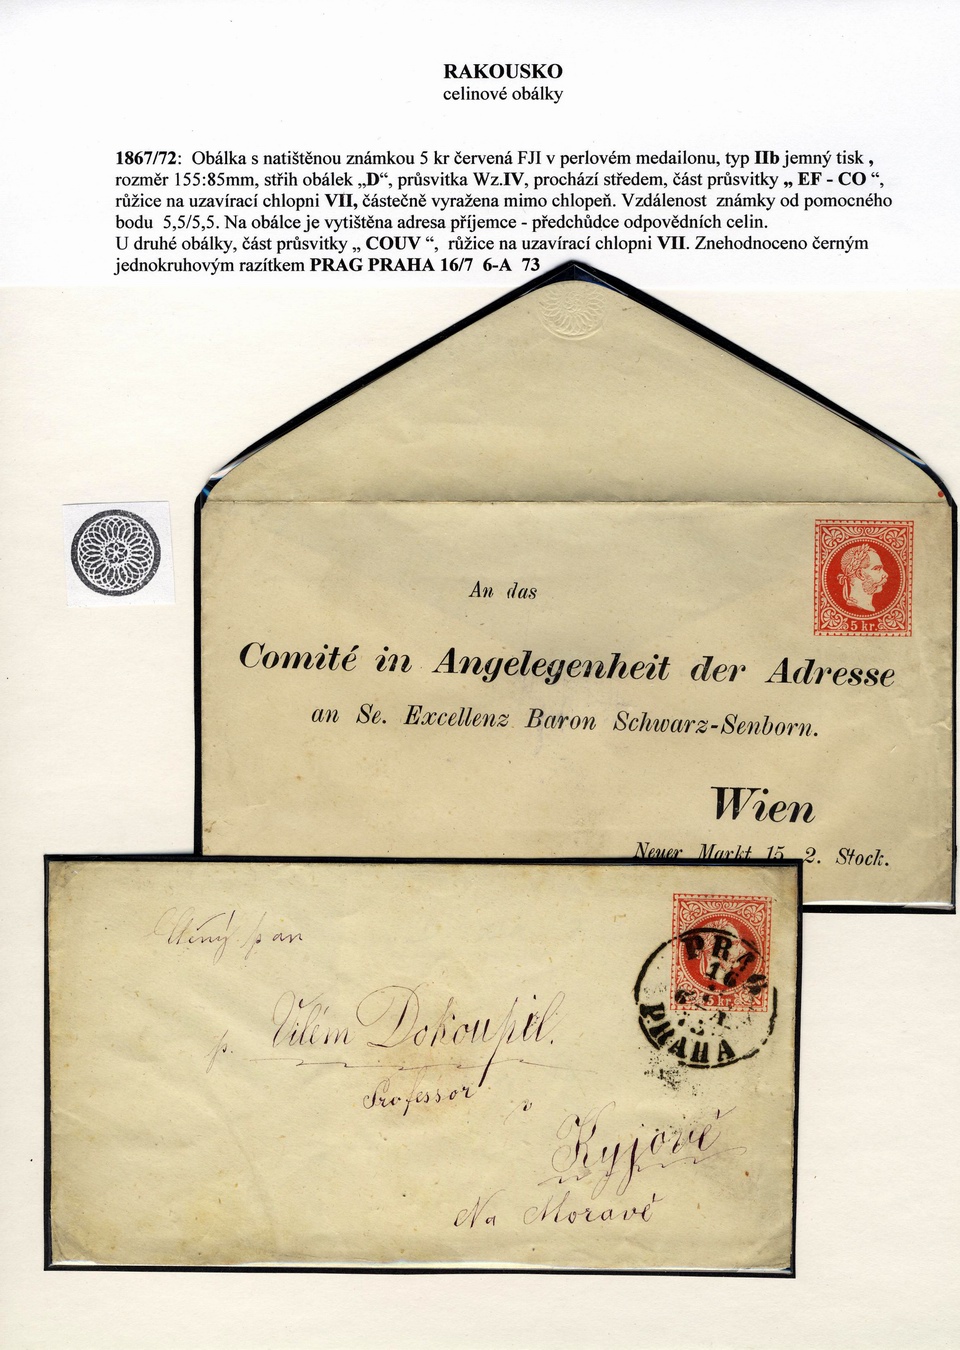 RAKOUSKO
celinové obálky
1867/72: Obálka s natištěnou známkou 5 kr červená FJI v perlovém medailonu, typ IIb jemný tisk ,
rozměr 155:85mm, střih obálek „D“, průsvitka Wz.IV, prochází středem, část průsvitky „ EF - CO “,
růžice na uzavírací chlopni VII, částečně vyražena mimo chlopeň. Vzdálenost známky od pomocného
bodu 5,5/5,5. Na obálce je vytištěna adresa příjemce - předchůdce odpovědních celin.
U druhé obálky, část průsvitky „ COUV “, růžice na uzavírací chlopni VII. Znehodnoceno černým
jednokruhovým razítkem PRAG PRAHA 16/7 6-A 73
5 kr.
An das
Comité in Angelegenheit der Adresse
an Se. Excellenz Baron Schwarz-Senborn.
Wien
Neuer Markt 15, 2. Stock.
5 kr.
PRAG
16
PRAHA
pan
p. Vilém Dokoupil.
Professor
v
Kyjově
Na Moravě